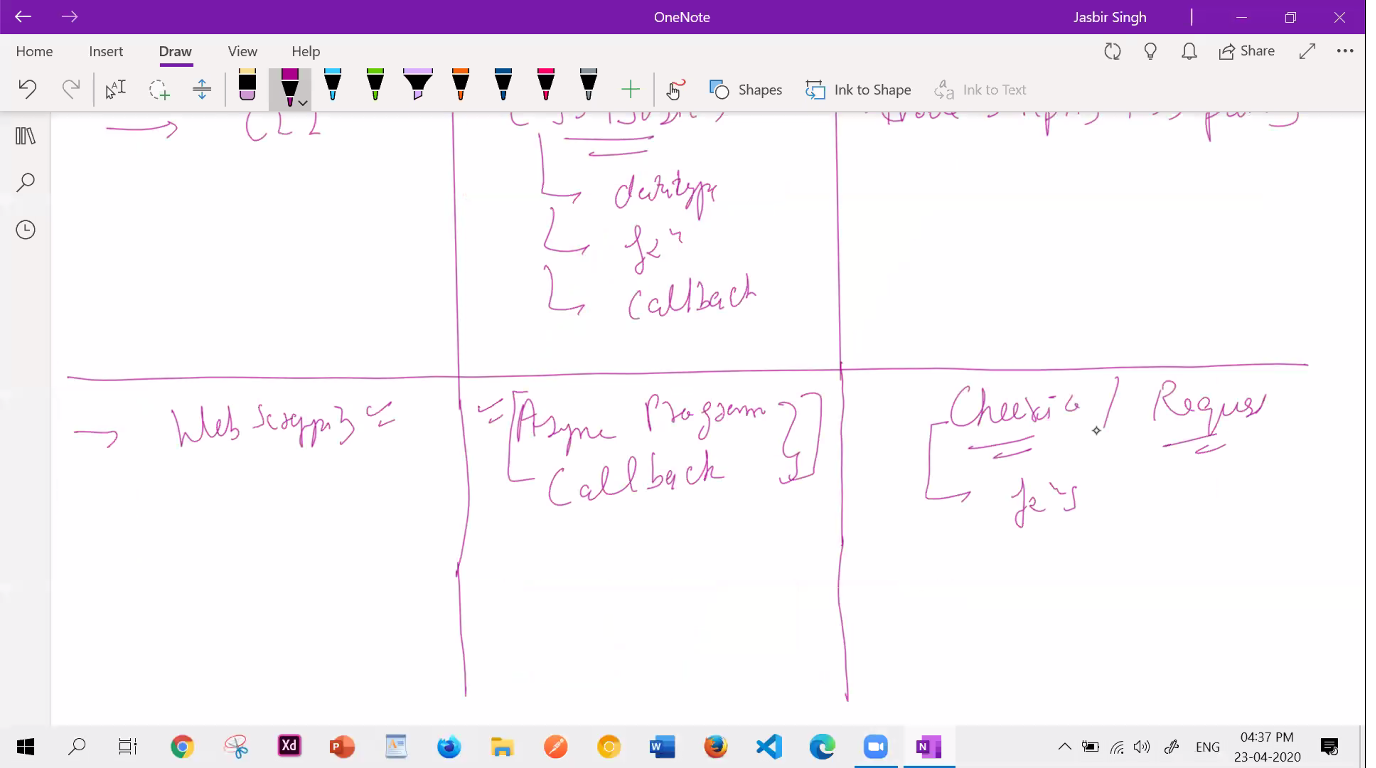 OneNote
Jasbir Singh
Home Insert Draw View Help
Share
Shapes Ink to Shape Ink to Text
datatype
Callback
Web
Async Program
Callback
Cheerio / Reques
ENG
04:37 PM
23-04-2020
Xd
P
W
N